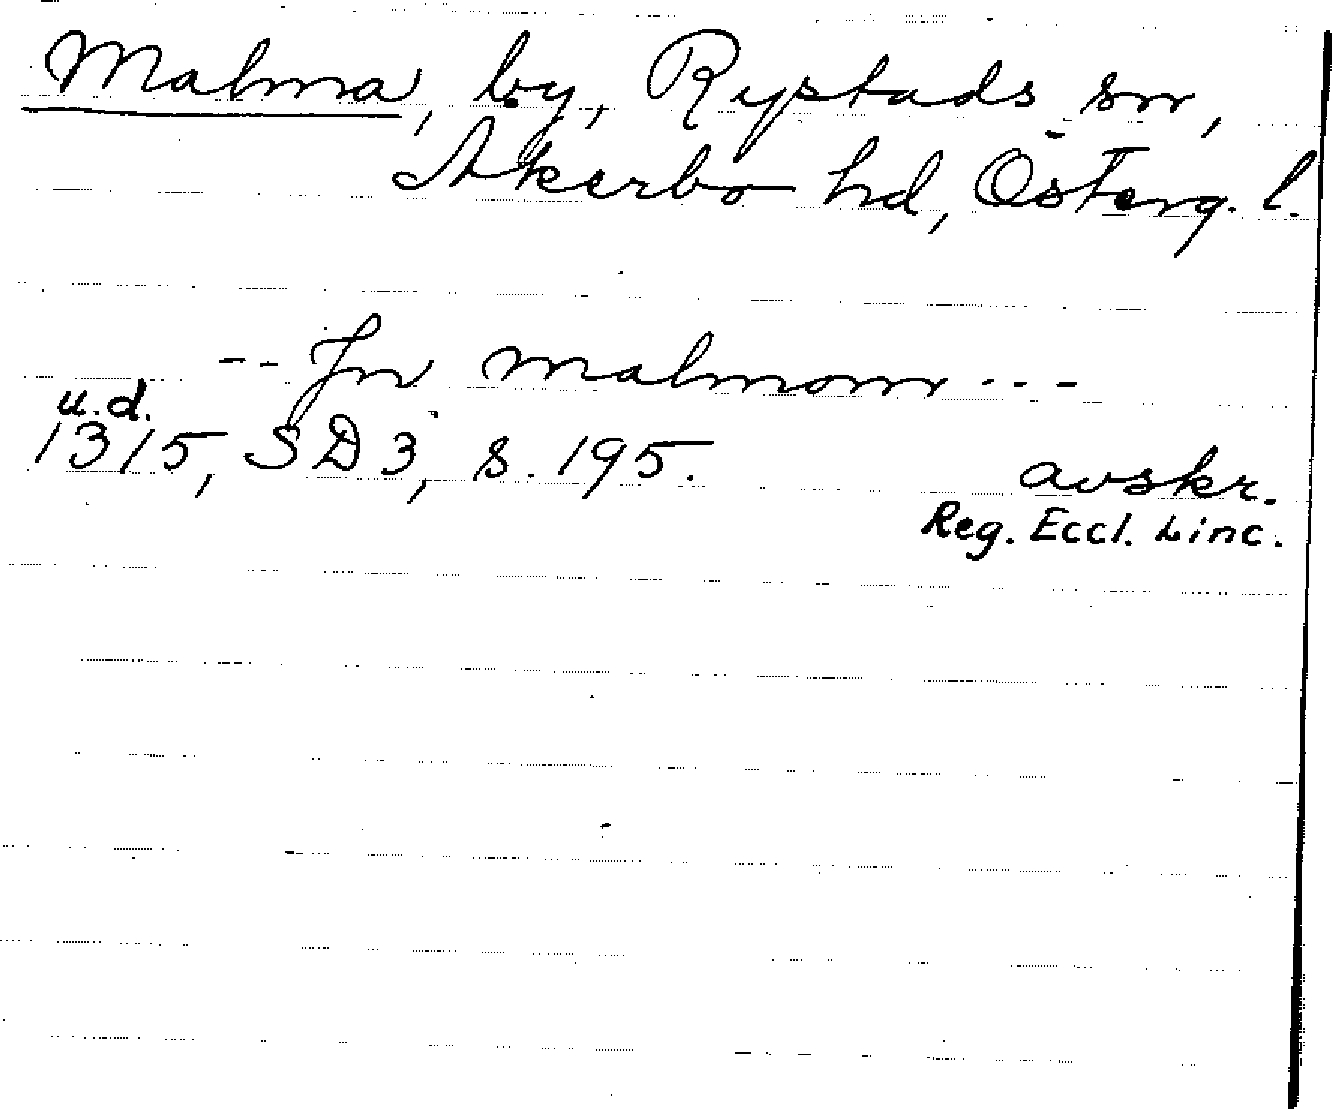 Malma, by, Rystads sn,
Åkerbo hd, Österg. l.
-- Jn malmom ---
u.d.
1315, SD3, s. 195.
avskr.
Reg. Eccl. Linc.